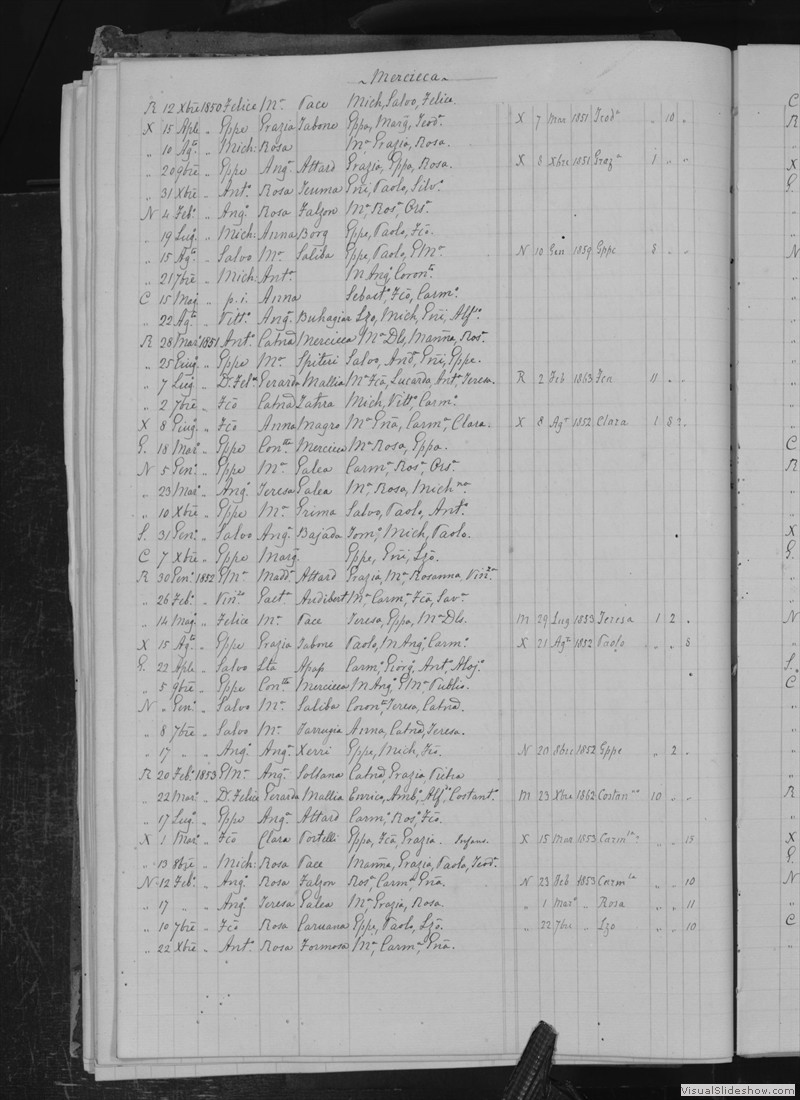 Mercieca
R 12 Xbre 1850 Felice Mª Pace Mich, Salvo, Felice.
X 15 Aple „ Gppe Grazia Tabone Gppa, Marg, Teod. X 7 Mar 1851 Teodª „ 10 „
„ 10 Agᵗᵒ „ Mich: Rosa Mª Grazia, Rosa.
„ 20 9bre „ Gppe Angª Attard Grazia, Gppa, Rosa. X 8 Xbre 1851 Grazª 1 „ „
„ 31 Xbre „ Antº Rosa Teuma Eni, Paolo, Silvº
N 4 Febº „ Angº Rosa Falzon Mª, Rosª, Orsª
„ 19 Lug „ Mich: Anna Borg Gppe, Paolo, Fcõ.
„ 15 Agᵗᵒ „ Salvo Mª Saliba Gppe, Paolo, G/Mª N 10 Gen 1859 Gppe 8 „ „
„ 21 7bre „ Mich: Antª M Angª, Coronᵗᵃ
C 15 Mag „ p.i. Anna Sebastº, Fcõ, Carmº
„ 22 Agᵗᵒ „ Vittº Angª Buhagiar Lzo, Mich, Eni, Alfº
R 28 Marº 1851 Antº Catnd Mercieca Mª Dls, Manña, Rosª
„ 25 Giugº „ Gppe Mª Spiteri Salvo, Antº, Eni, Gppe.
„ 7 Lug „ Dr Felº Gerarda Mallia Mª Fcã, Lucarda, Antª, Teresa. R 2 Feb 1863 Fca 11 „ „
„ 2 7bre „ Fcõ Catnd Zahra Mich, Vittº, Carmº
X 8 Giugº „ Fcõ Anna Magro Mª Gnã, Carmª, Clara. X 8 Agᵗᵒ 1852 Clara 1 8 2 „
G. 18 Marº „ Gppe Conᵗᵗᵃ Mercieca Mª Rosa, Gppa.
N 5 Genº „ Gppe Mª Galea Carmª, Rosª, Orsª
„ 23 Marº „ Angº Teresa Galea Mª, Rosa, Michⁿᵃ
„ 10 Xbre „ Gppe Mª Grima Salvo, Paolo, Antº
S. 31 Genº „ Salvo Angª Bajada Tomº, Mich, Paolo.
C 7 Xbre „ Gppe Marg Gppe, Eni, Lzõ.
R 30 Genº 1852 G/Mª Madª Attard Grazia, Mª, Rosanna, Vinzª
„ 26 Febº „ Vinzº Gaetª Audibert Mª Carmª, Fcã, Savª
„ 14 Magº „ Felice Mª Pace Teresa, Gppa, Mª Dls. M 29 Lug 1853 Teresa 1 2 „
X 15 Agᵗᵒ „ Gppe Grazia Tabone Paolo, M Angª, Carmº X 21 Agᵗᵒ 1852 Paolo „ „ 8
G. 22 Aple „ Salvo Lta Apap Carmº, Giorgº, Antº, Alojº
„ 5 9bre „ Gppe Conᵗᵗᵃ Mercieca M Angº, G/Mª, Publio.
N „ Genº „ Salvo Mª Saliba Coronᵗᵃ, Teresa, Catnd.
„ 8 7bre „ Salvo Mª Farrugia Anna, Catnd, Teresa.
„ 17 „ „ Angº Angª Xerri Gppe, Mich, Fcõ. N 20 8bre 1852 Gppe „ 2 „
R 20 Febº 1853 G/Mª Angª Soltana Catnd, Grazia, Pietra
„ 22 Marº „ Dr Felice Gerarda Mallia Enrico, Ambº, Alfº, Costantº M 23 Xbre 1862 Costanⁿᵒ 10 „ „
„ 17 Lugº „ Gppe Angª Attard Carmº, Rosº, Fcõ.
X 1 Marº „ Fcõ Clara Portelli Gppa, Fcã, Grazia. Infans. X 15 Mar 1853 Carmˡª „ „ 15
„ 13 8bre „ Mich: Rosa Pace Manña, Grazia, Paola, Teodª
N 12 Febº „ Angº Rosa Falzon Rosª, Carmª, Gnã. N 23 Feb 1853 Carmˡª „ „ 10
„ 17 „ „ Angº Teresa Galea Mª Grazia, Rosa. „ 1 Marº „ Rosa „ „ 11
„ 10 7bre „ Fcõ Rosa Caruana Gppe, Paolo, Lzõ. „ 22 7bre „ Lzo „ „ 10
„ 22 Xbre „ Antº Rosa Formosa Mª, Carmª, Gnã.
VisualSlideshow.com